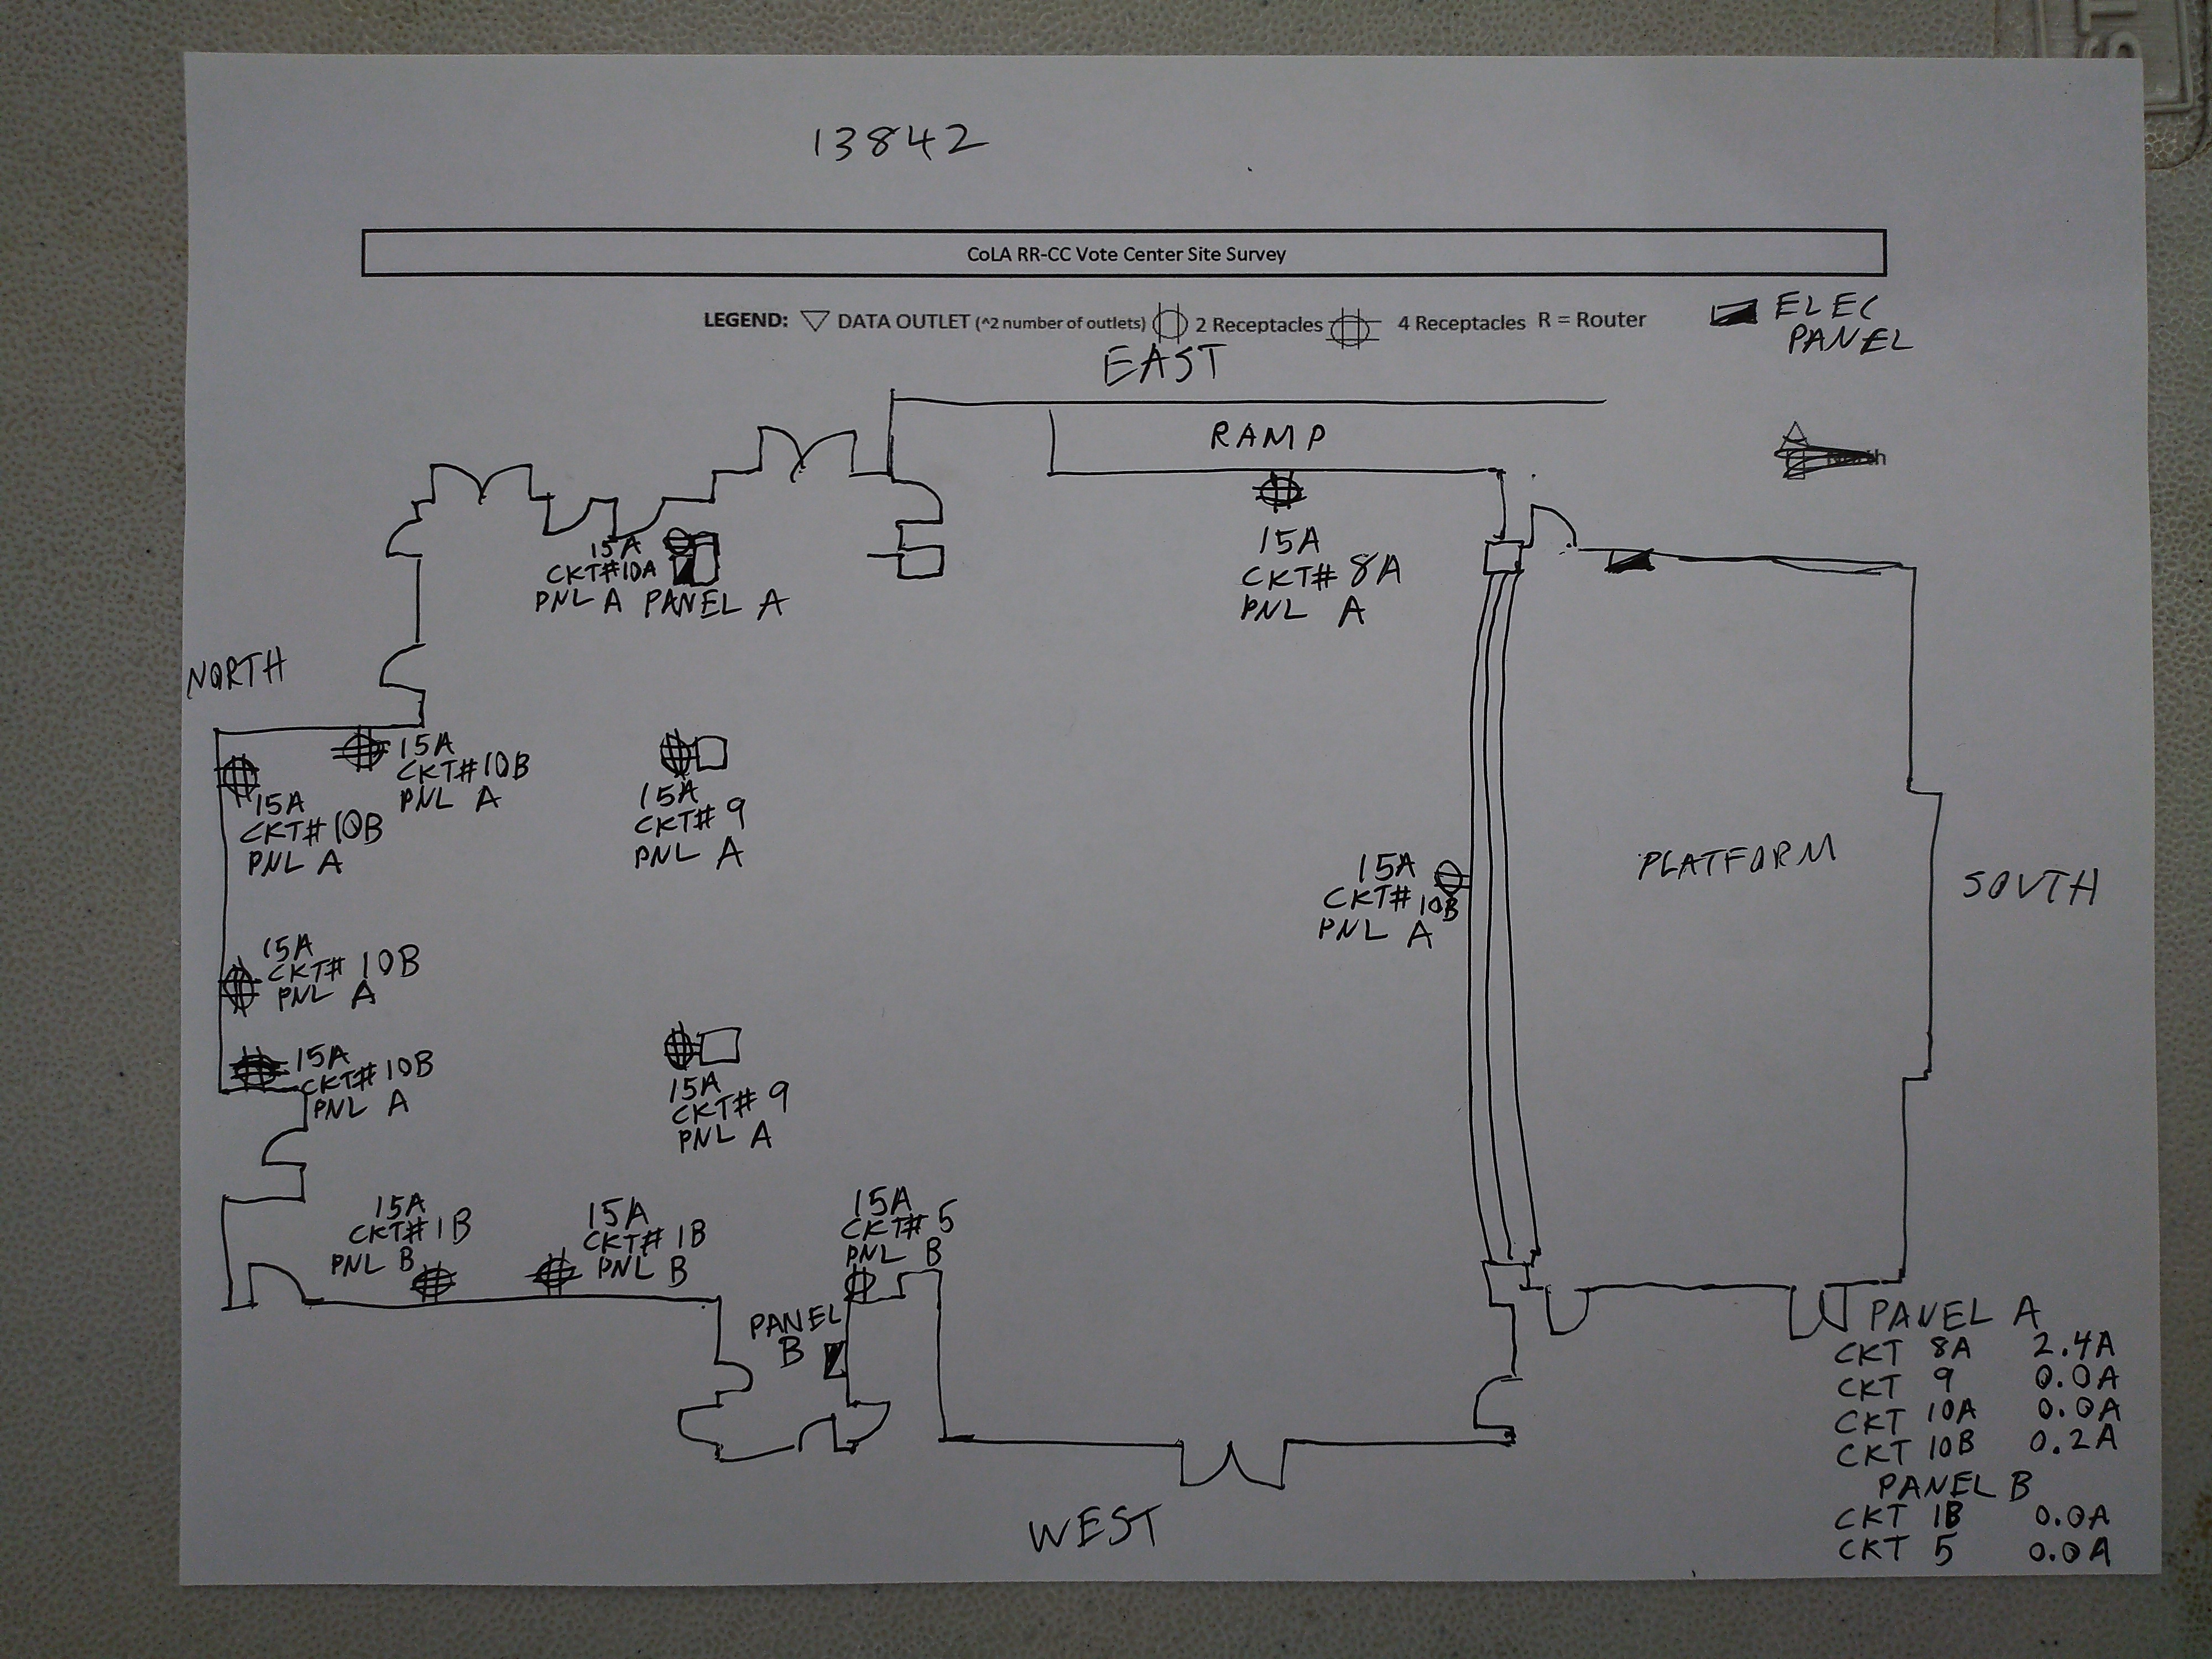 13842
CoLA RR-CC Vote Center Site Survey
LEGEND: DATA OUTLET (^2 number of outlets) 2 Receptacles 4 Receptacles R = Router
ELEC
PANEL
EAST
RAMP
15A
CKT#10A
PNL A PANEL A
15A
CKT# 8A
PNL A
NORTH
15A
CKT#10B
PNL A
15A
CKT#10B
PNL A
15A
CKT# 9
PNL A
15A
CKT# 10B
PNL A
PLATFORM
SOUTH
15A
CKT# 10B
PNL A
15A
CKT#10B
PNL A
15A
CKT# 9
PNL A
15A
CKT# 1B
PNL B
15A
CKT# 1B
PNL B
15A
CKT# 5
PNL B
PANEL
B
WEST
PANEL A
CKT 8A 2.4A
CKT 9 0.0A
CKT 10A 0.0A
CKT 10B 0.2A
PANEL B
CKT 1B 0.0A
CKT 5 0.0A